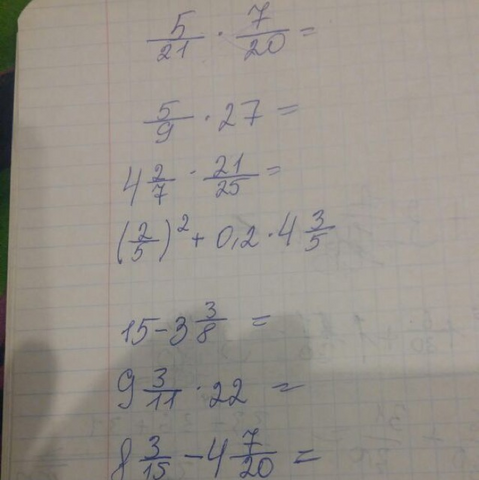 5/21 · 7/20 =
5/9 · 27 =
4 2/7 · 21/25 =
(2/5)² + 0,2 · 4 3/5
15 - 3 3/8 =
9 3/11 · 22 =
8 3/15 - 4 7/20 =